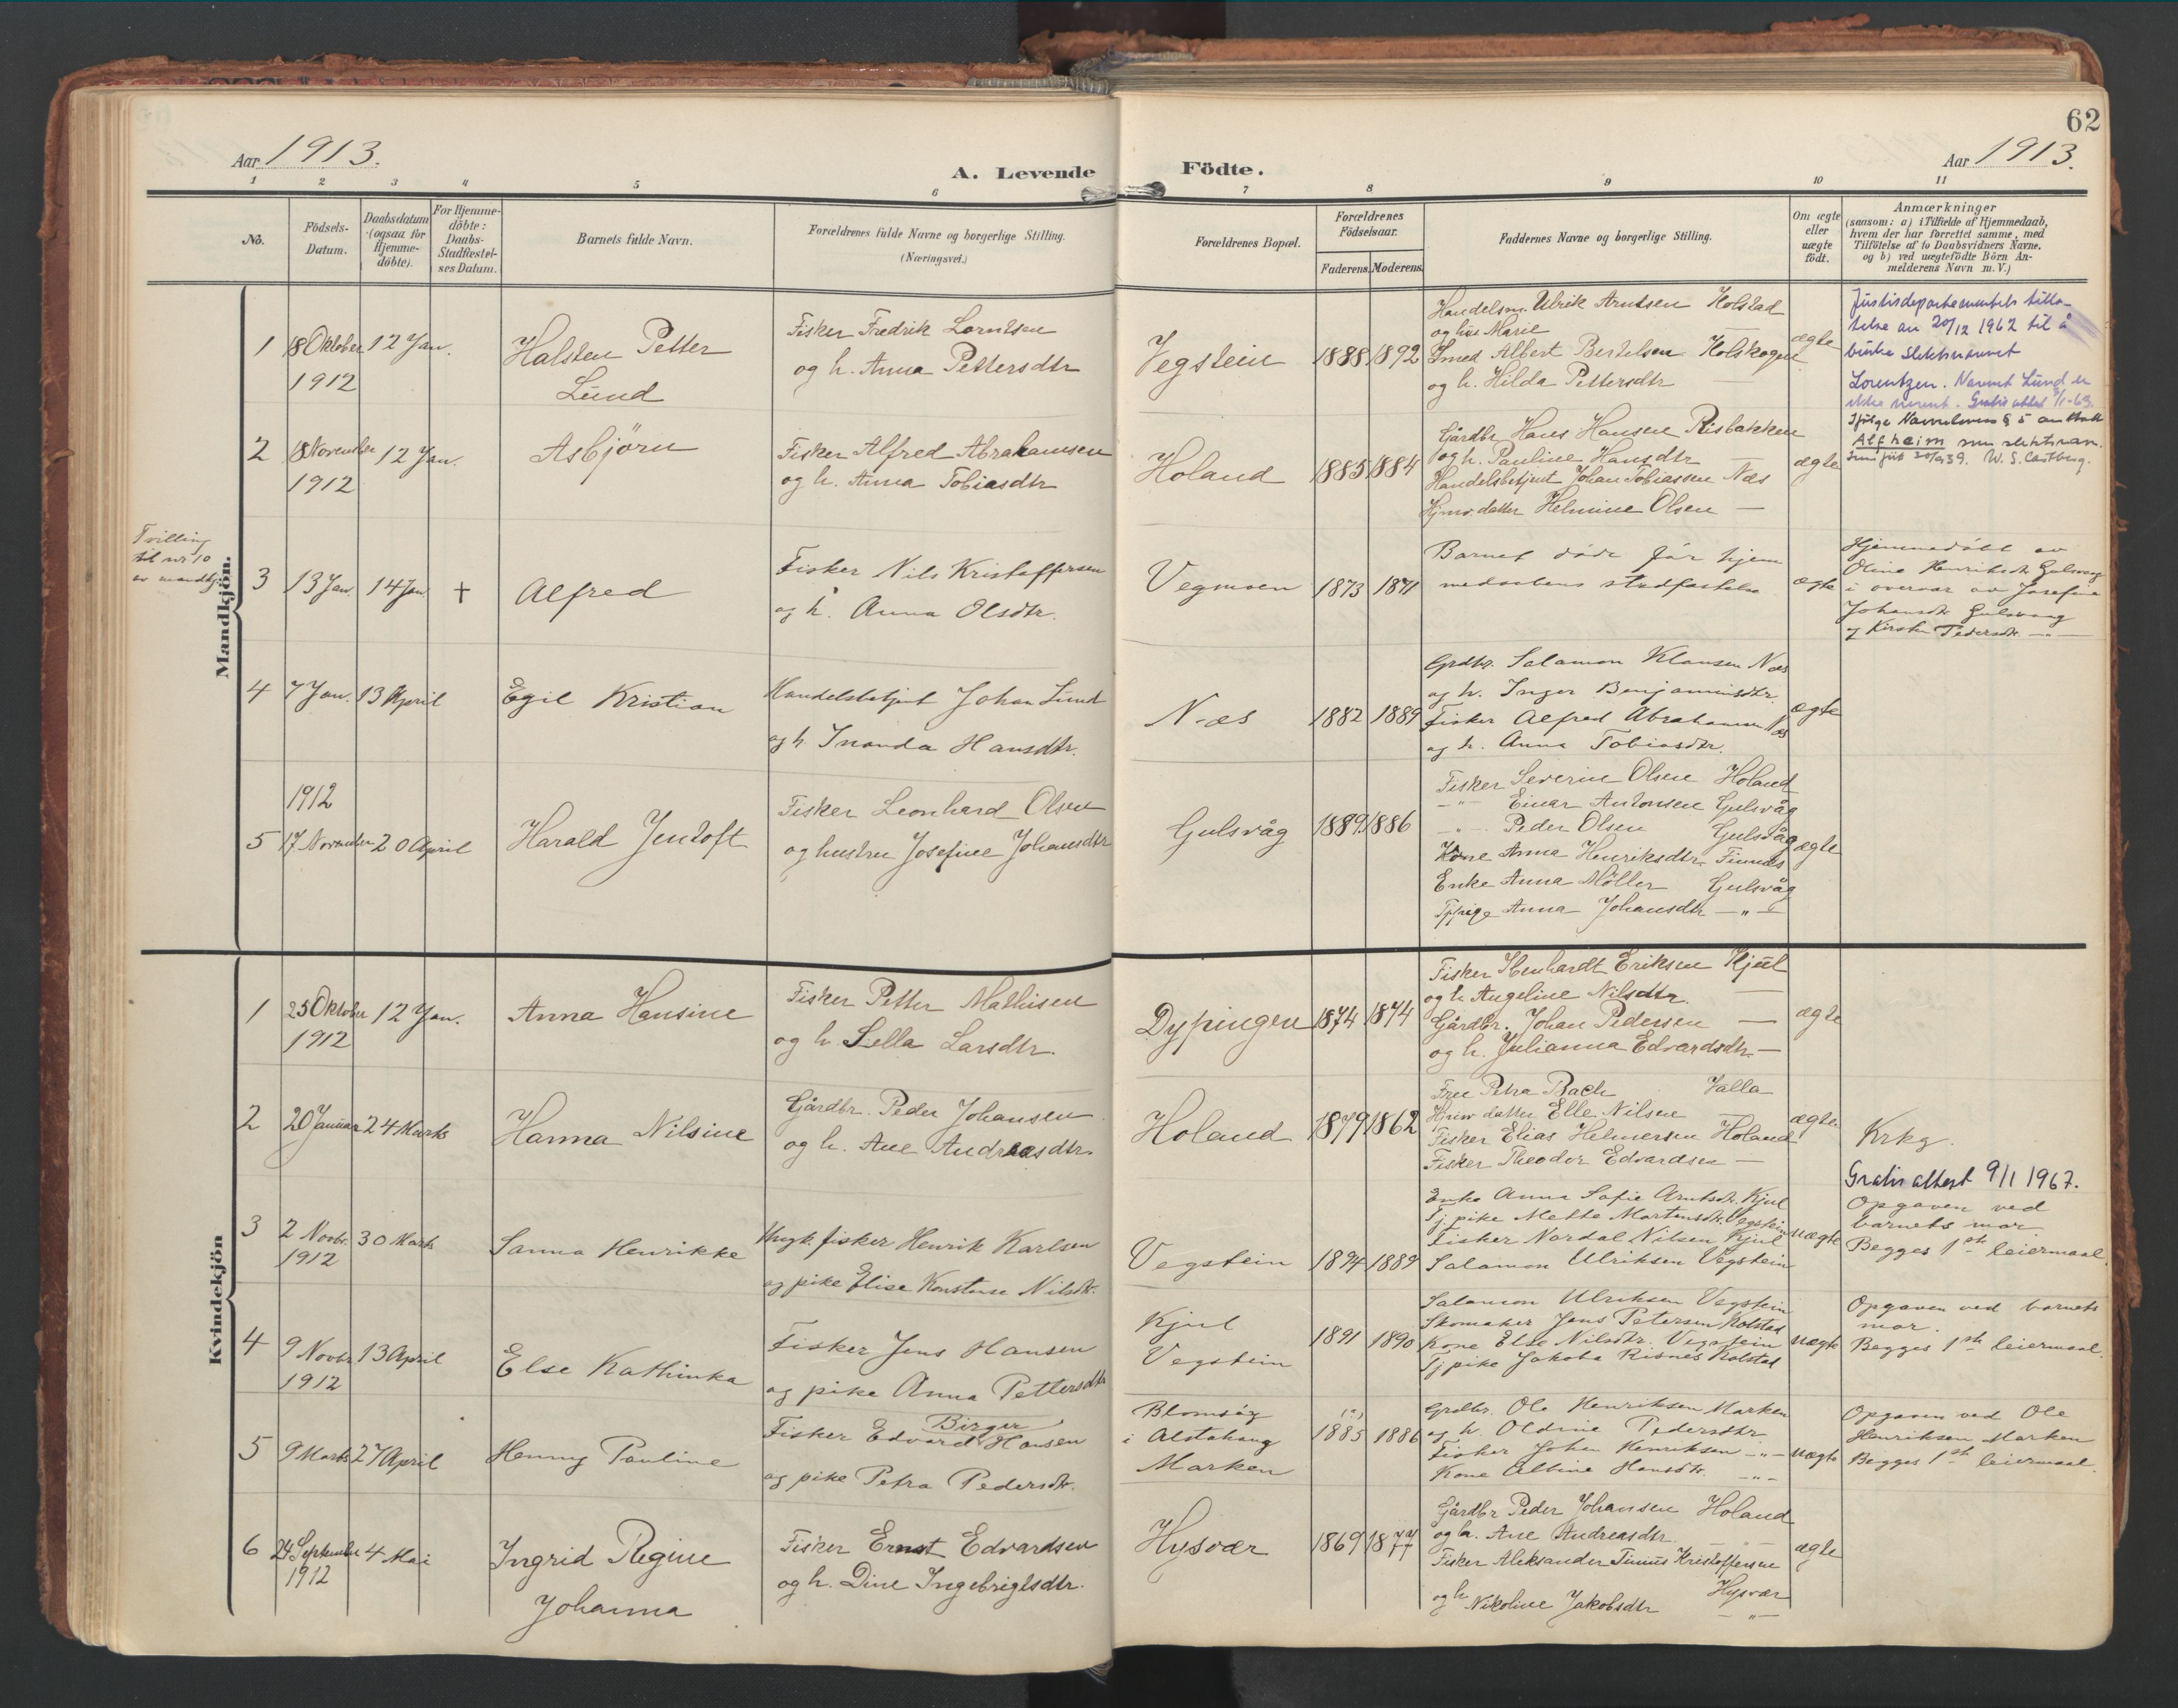 62
Aar 1913.
A. Levende
Födte.
Aar 1913.
1 2 3 4 5 6 7 8 9 10 11
No.
Födsels-
Datum.
Daabsdatum
(ogsaa for
Hjemme-
döbte).
For Hjemme-
döbte:
Daabs-
Stadfæstel-
ses Datum.
Barnets fulde Navn.
Forældrenes fulde Navne og borgerlige Stilling.
(Næringsvei.)
Forældrenes Bopæl.
Forældrenes
Födselsaar.
Faderens. Moderens.
Faddernes Navne og borgerlige Stilling.
Om ægte
eller
uægte
födt.
Anmærkninger
(saasom: a) i Tilfælde af Hjemmedaab,
hvem der har forrettet samme, med
Tilföielse af to Daabsvidners Navne,
og b) ved uægtefödte Börn An-
melderens Navn m. V.)
Mandkjön.
1
18 Oktober
1912
12 Jan.
Halsten Petter
Lund
Fisker Fredrik Lorntsen
og h. Anna Pettersdtr
Vegstein
1888
1892
Handelsm. Ulrik Arntsen Kolstad
og hus Marie
Smed Albert Bertelsen Holskogen
og h. Hilda Pettersdtr —
ægte
Justisdepartementets tilla-
telse av 20/12 1962 til å
bruke slektsnavnet
Lorentzen. Navnet Lund er
ikke nevnt. Gratis attest /1-63.
2
18 November
1912
12 Jan.
Asbjörn
Fisker Alfred Abrahamsen
og h. Anna Tobiasdtr
Holand
1885
1884
Gårdbr. Hans Hansen Risbakken
og h. Pauline Hansdtr —
Handelsbetjent Johan Tobiassen Næs
Hjmv. datter Helmine Olsen —
ægte
Ifölge Navneloven § 5 antatt
Alfheim som slektsnavn.
20/9 39. W. S. Castberg.
Tvilling
til nr 10
av mandkj.
3
13 Jan.
14 Jan.
+
Alfred
Fisker Nils Kristoffersen
og h. Anna Olsdtr.
Vegmoen
1873
1871
Barnet döde för hjem
medaabens stadfæstelse
ægte
Hjemmedöbt av
Oline Henriksdtr. Gulsvaag
i overvær av Josefine
Johansdtr Gulsvaag
og Kirstn Pedersdtr. —"—
4
7 Jan.
13 April
Egil Kristian
Handelsbetjent Johan Lund
og h. Inanda Hansdtr.
Næs
1882
1889
Grdbr. Salamon Klausen Næs
og h. Inger Benjaminsdtr.
Fisker Alfred Abrahamsen Næs
og h. Anna Tobiasdtr.
ægte
5
1912
17 November
20 April
Harald Jentoft
Fisker Leonhard Olsen
og hustru Josefine Johansdtr
Gulsvåg
1889
1886
Fisker Severin Olsen Holand
—"— Einar Antonsen Gulsvåg
—"— Peder Olsen Gulsvåg
Kone Anna Henriksdtr. Finnæs
Enke Anna Möller Gulsvåg
Tjpige Anna Johansdtr —"—
ægte
Kvindekjön
1
25 Oktober
1912
12 Jan.
Anna Hansine
Fisker Petter Mathisen
og h. Sella Larsdtr.
Dypingen
1874
1874
Fisker Ebenhardt Eriksen Kjul
og h Angeline Nilsdtr. —
Gårdbr. Johan Pedersen —
og h. Julianna Edvardsdtr —
ægte
2
20 Januar
24 Marts
Hanna Nilsine
Gårdbr. Peder Johansen
og h. Ane Andreasdtr
Holand
1879
1862
Fru Petra Bach Valla
Hjmv datter Elle Nilsen
Fisker Elias Helmersen Holand
Fisker Theodor Edvardsen —
ægte
Krkg.
Gratis attest 9/1 1967.
3
2 Novbr.
1912
30 Marts
Sanna Henrikke
Ungk. fisker Henrik Karlsen
og pike Elise Konstanse Nilsdtr.
Vegstein
1894
1889
Enke Anna Sofie Arntsdtr. Kjul
Tj. pike Mette Mortensdtr. Vegstein
Fisker Nordal Nilsen Kjul
Salamon Ulriksen Vegstein
uægte
Opgaven ved
barnets mor
Begges 1st leiermaal.
4
9 Novbr.
1912
13 April
Else Kathinka
Fisker Jens Hansen
og pike Anna Pettersdtr
Kjul
Vegstein
1891
1890
Salamon Ulriksen Vegstein
Skomaker Jens Petersen Kolstad
Kone Else Nilsdtr. Vegstein
Tj. pike Jakoba Risnes Kolstad
uægte
Opgaven ved barnets
mor.
Begges 1st leiermaal.
5
9 Marts
27 April
Henny Pauline
Birger
Fisker Edvard Hansen
og pike Petra Pedersdtr.
Blomsöy
i Alstahaug
Marken
(?)
1885
1886
Grdbr. Ole Henriksen Marken
og h. Oldine Pedersdtr
Fisker Johan Henriksen —"—
Kone Albine Hansdtr. —"—
uægte
Opgaven ved Ole
Henriksen Marken
Begges 1st leiermaal.
6
24 September
1912
4 Mai
Ingrid Regine
Johanna
Fisker Ernst Edvardsen
og h. Dine Ingebrigtsdtr.
Hysvær
1869
1877
Gårdbr Peder Johansen Holand
og h. Ane Andreasdtr. — " —
Fisker Aleksander Tinius Kristoffersen
Hysvær
og h Nikoline Jakobsdtr — " —
ægte